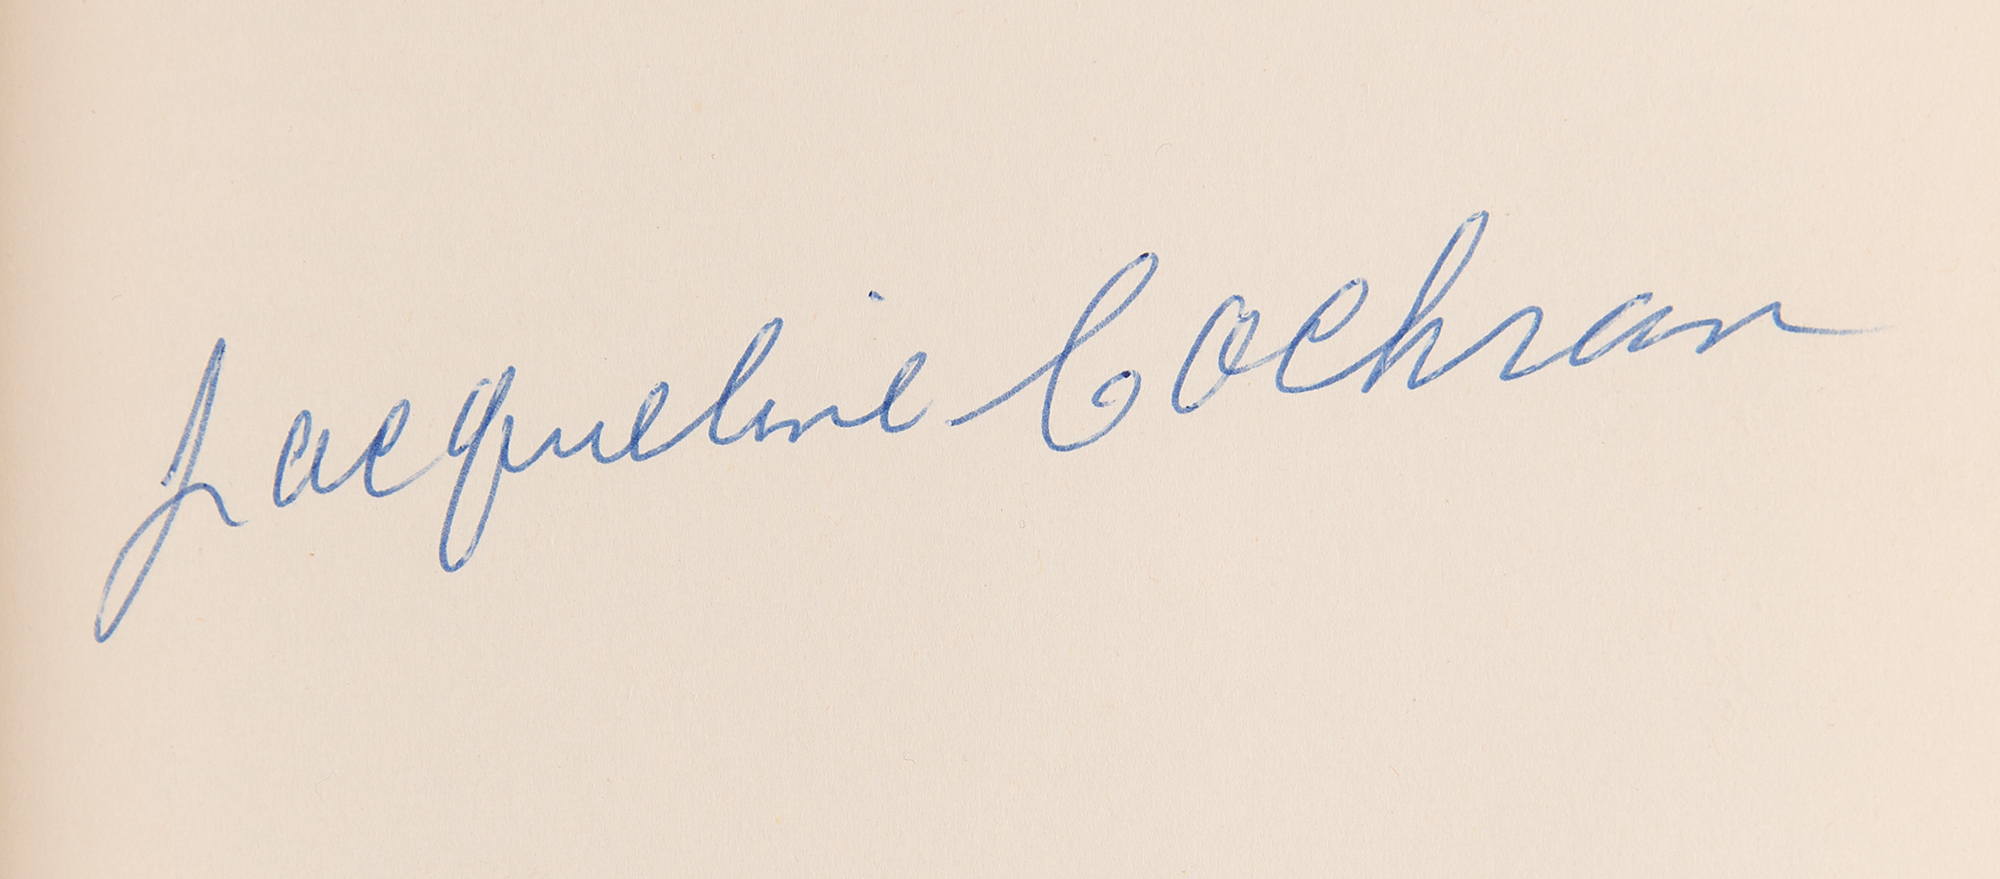 Jacqueline Cochran